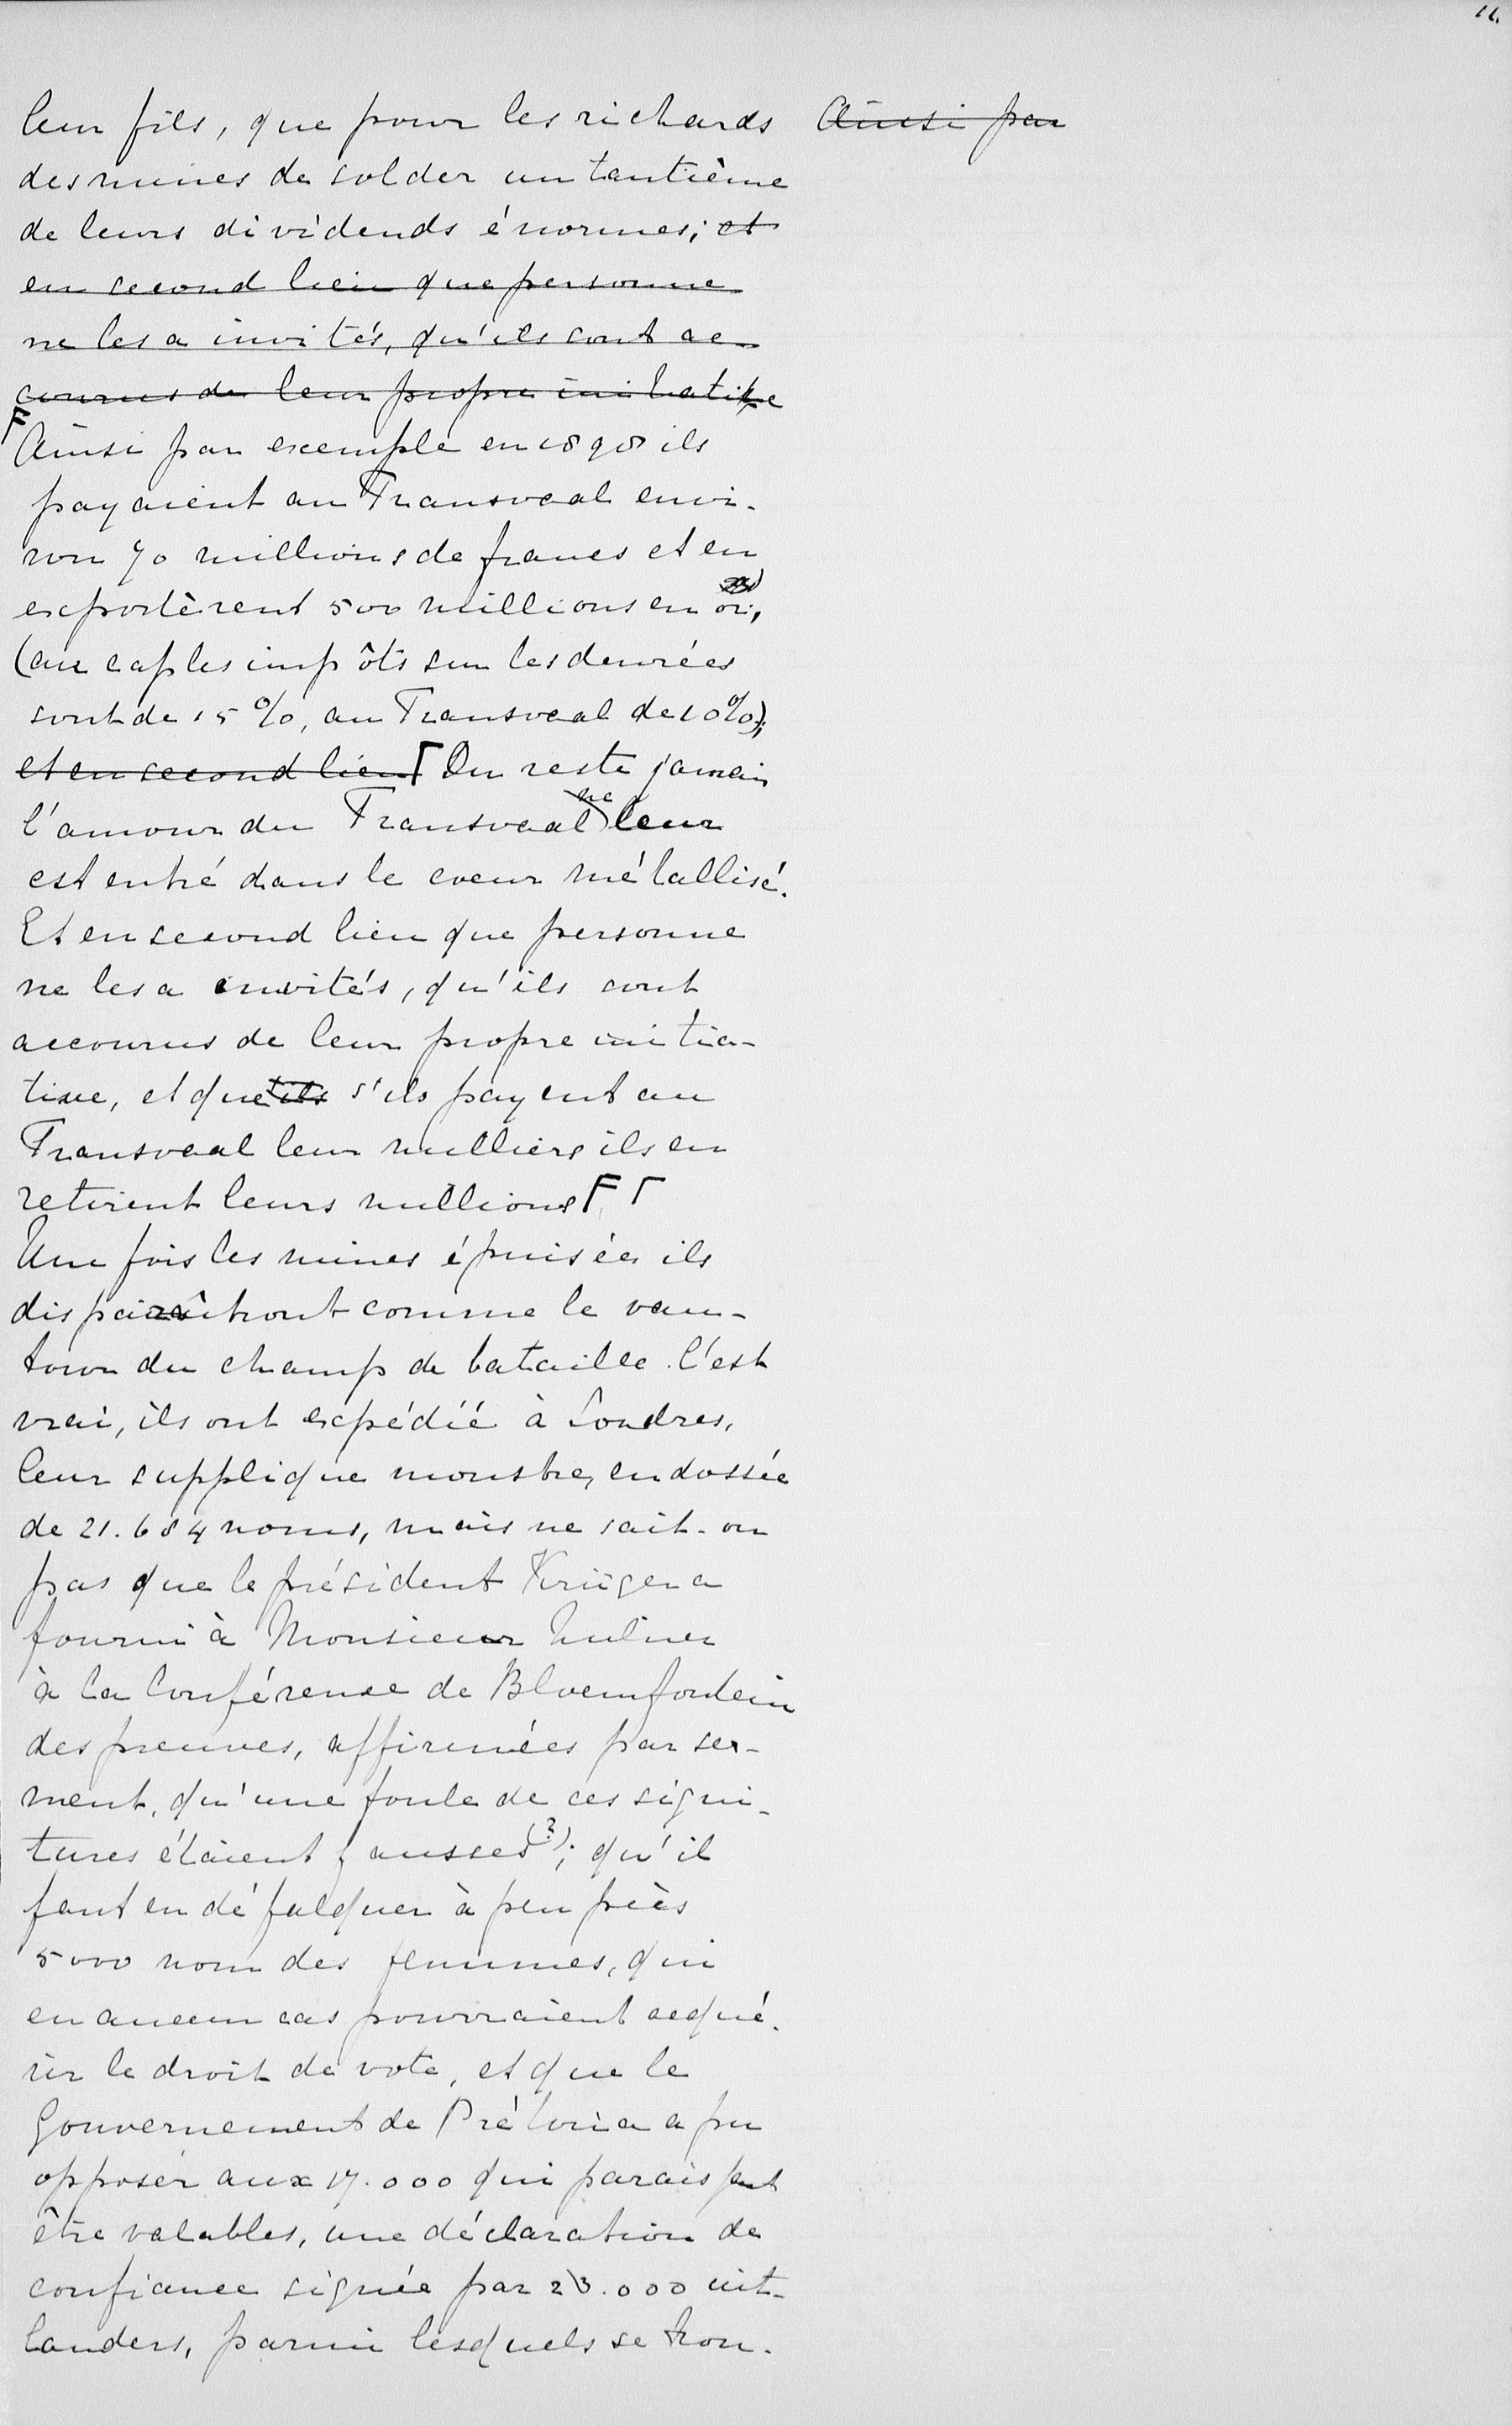 11.
leur fils, que pour les richards
des mines de solder un tantième
de leurs dividends énormes; et
en second lieu que personne
ne les a invités, qu'ils sont ac-
courus de leur propre initiative
Ainsi par
F
Ainsi par exemple en 1898 ils
payaient au Transvaal envi-
ron 70 millions de francs et en
exportèrent 500 millions en or,
(au cap les impôts sur les denrées
sont de 15 %, au Transvaal de 10%);
et en second lieu Γ Du reste jamais
l'amour du Transvaal ne leur
est entré dans le coeur métallisé.
Et en second lieu que personne
ne les a invités, qu'ils sont
accourus de leur propre initia-
tive, et que ils s'ils payent au
Transvaal leur milliers ils en
retirent leurs millions F Γ
Une fois les mines épuisées ils
disparaîtront comme le vau-
tour du champ de bataille. C'est
vrai, ils ont expédié à Londres,
leur supplique monstre, endossée
de 21.684 noms, mais ne sait-on
pas que le président Krüger a
fourni à Monsieur Milner
à la Conférence de Bloemfontein
des preuves, affirmées par ser-
ment, qu'une foule de ces signi-
tures étaient fausses (2); qu'il
faut en défalquer à peu près
5000 nom des femmes, qui
en aucun cas pourraient acqué-
rir le droit de vote, et que le
Gouvernement de Prétoria a pu
opposer aux 17.000 qui paraissent
être valables, une déclaration de
confiance signée par 23.000 uit-
landers, parmi lesquels se trou-